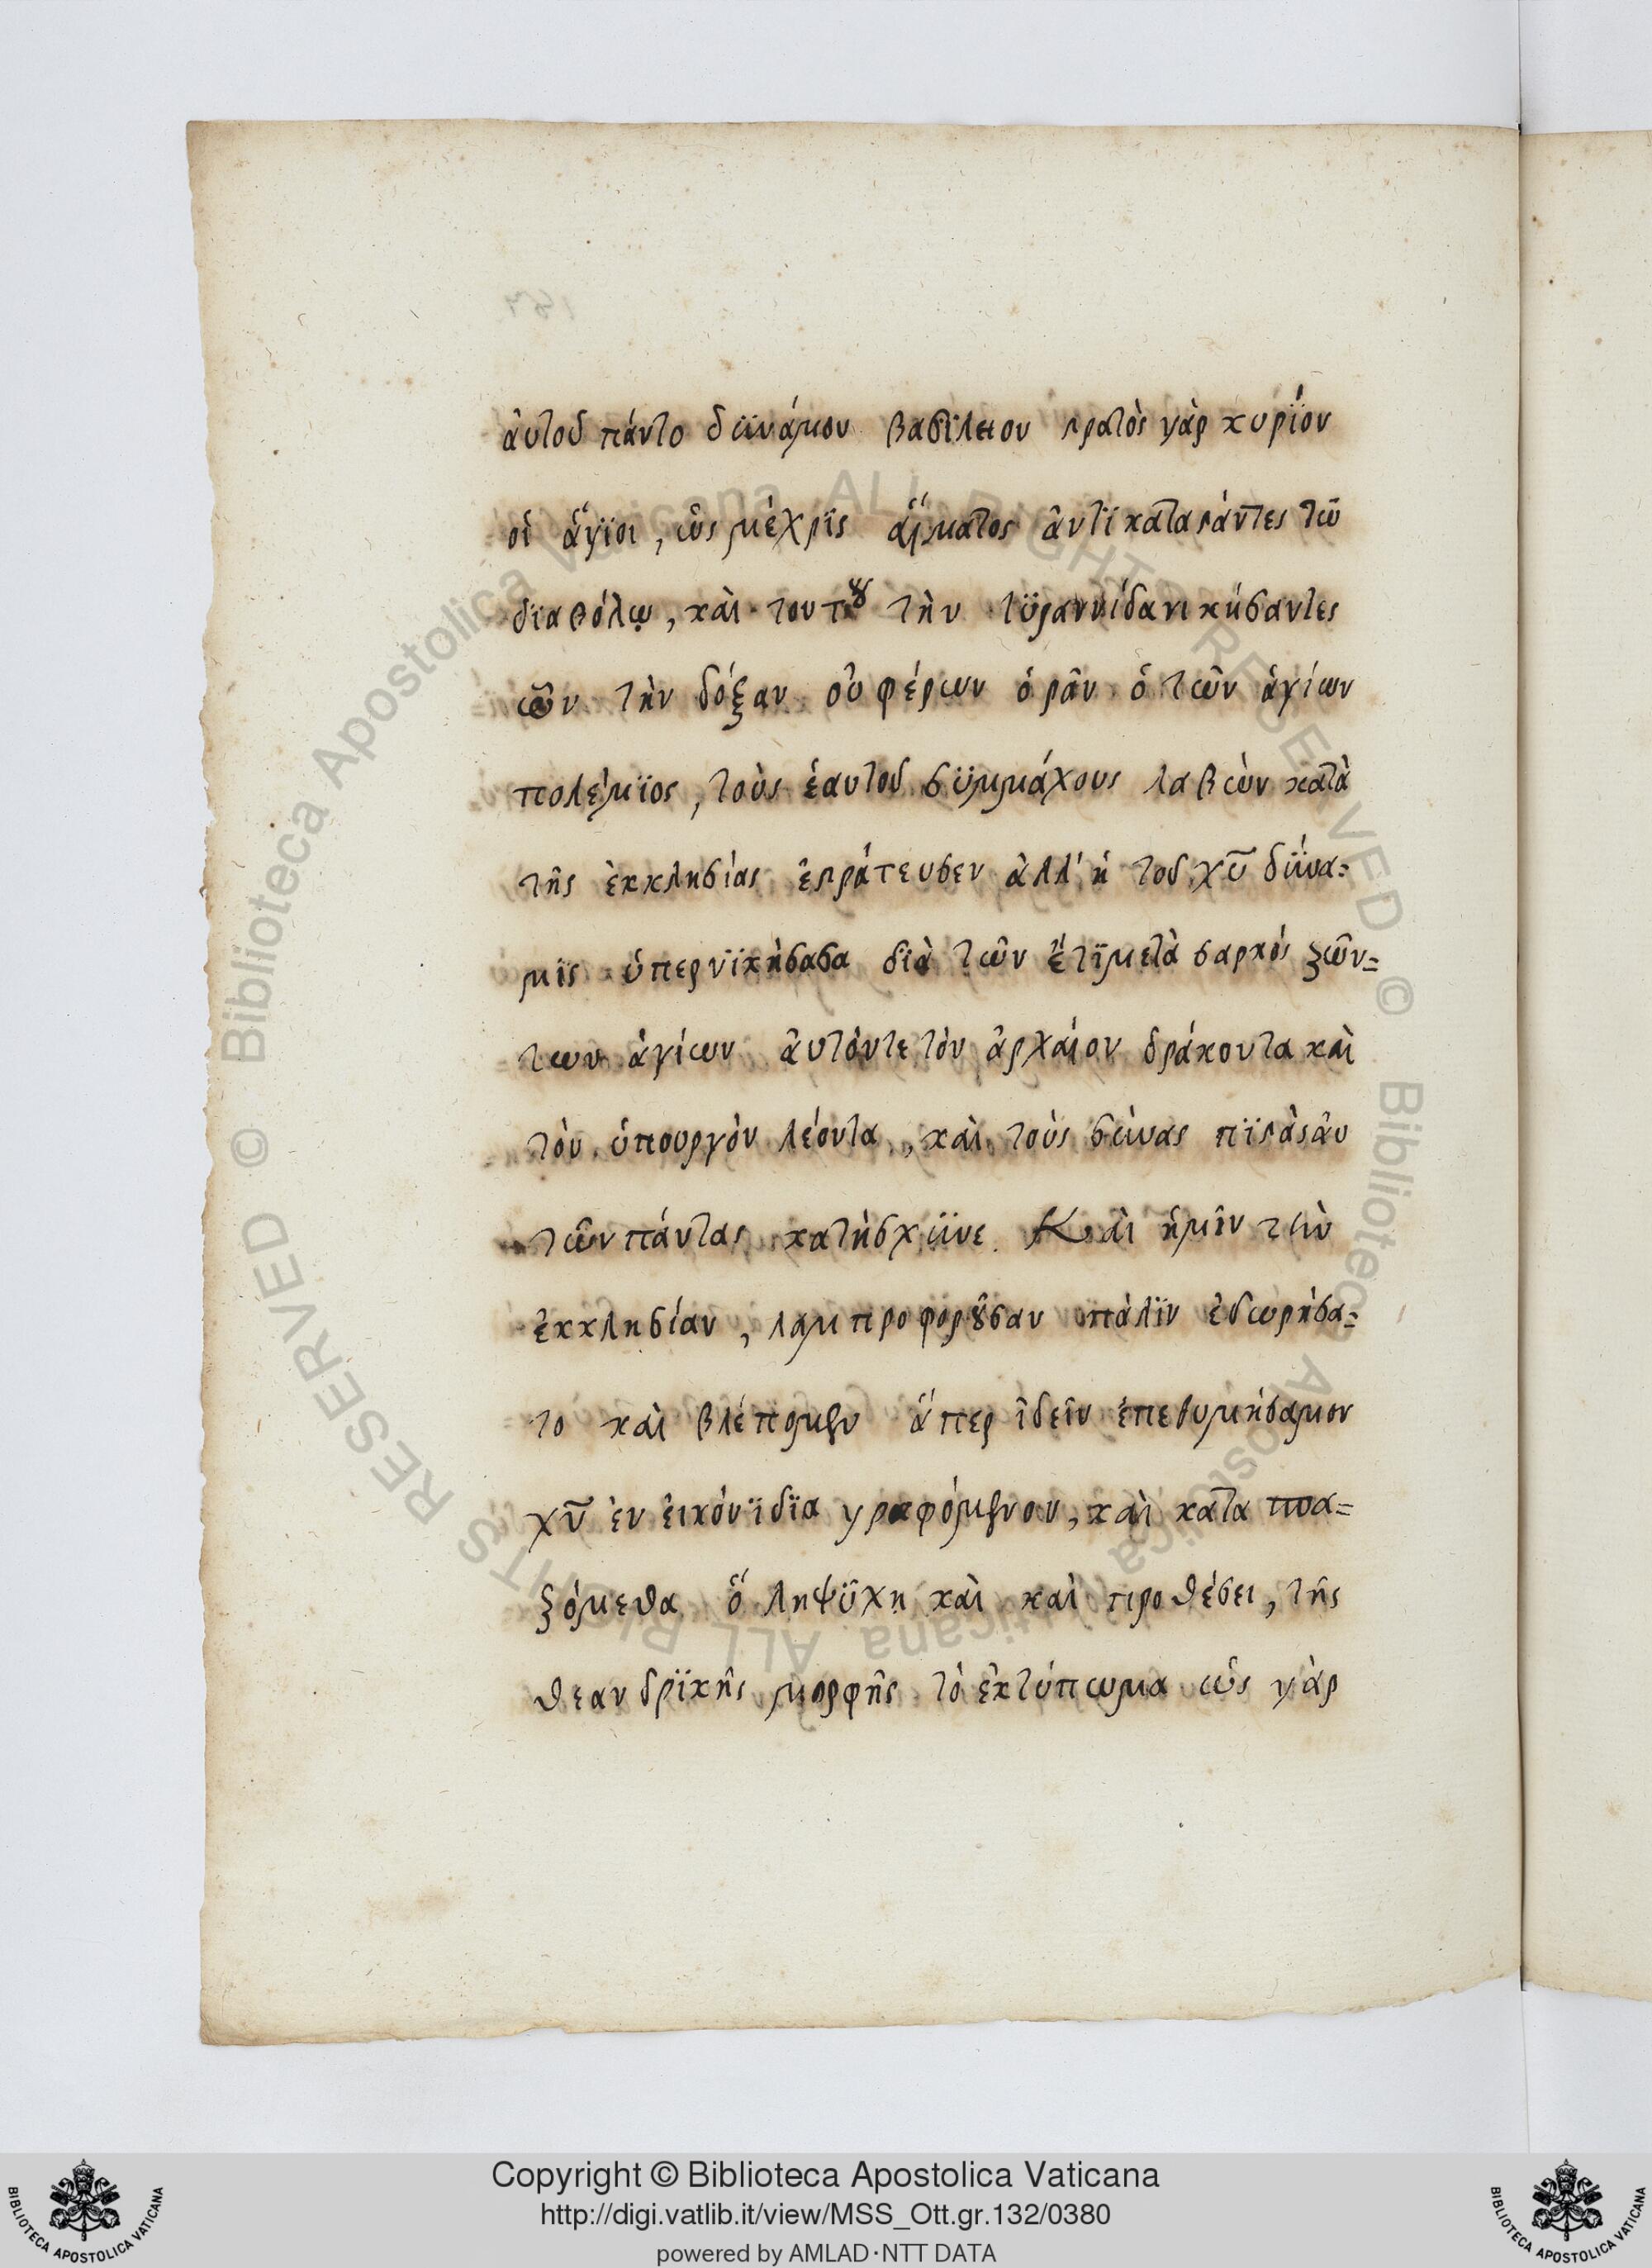 ἀυτοῦ πάντο δϋνάμου βασϊλειου στρατὸς γὰρ κυρίου
οἱ ἅγϊοι, ὡς μέχρϊς αἵματος ἀντϊκαταστάντες τῶ
δϊαβόλῳ, καὶ τουτου τὴν τϋραννίδα νικήσαντες
ὧν τὴν δόξαν οὐ φέρων ὁρᾶν ὁ τῶν ἁγίων
πολέμϊος, τοὺς ἑαυτοῦ σϋμμάχους λαβὼν κατὰ
τῆς ἐκκλησίας ἐστράτευσεν ἀλλ' ἡ τοῦ χυ δϋνα=
μϊς ὑπερνϊκήσασα δϊὰ τῶν ἔτϊ μετὰ σαρκός ζῶν=
των ἁγίων ἀυτόντε τὸν ἀρχαίον δράκοντα καὶ
τὸν ὑπουργὸν λέοντα, καὶ τοὺς σϋνασπϊστὰς ἀυ
τῶν πάντας κατήσχϋνε. Καὶ ἡμῖν τὴν
ἐκκλησίαν, λαμπροφοροῦσαν πάλϊν ἐδωρήσα=
το καὶ βλέπομεν ἅπερ ἰδεῖν ἐπεθυμήσαμεν
χν ἐν ἐικόνϊ δϊαγραφόμενον, καὶ κατασπα=
ζόμεθα ὅλη ψϋχη καὶ καὶ προθέσει, τῆς
θεανδρϊκῆς μορφῆς τὸ ἐκτύπωμα ὡς γὰρ
Copyright © Biblioteca Apostolica Vaticana
http://digi.vatlib.it/view/MSS_Ott.gr.132/0380
powered by AMLAD·NTT DATA